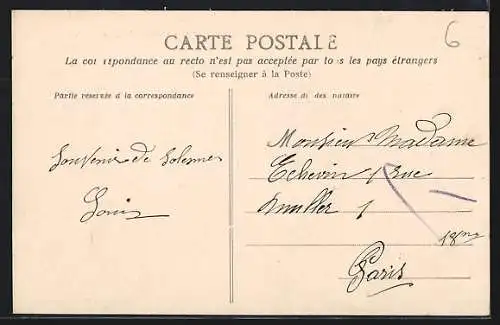 CARTE POSTALE
6
La correspondance au recto n'est pas acceptée par tous les pays étrangers
(Se renseigner à la Poste)
Partie réservée à la correspondance
Adresse du destinataire
Souvenir de Solesmes
Louis
Monsieur Madame
Echevin 1 rue
Muller 1
18me
Paris